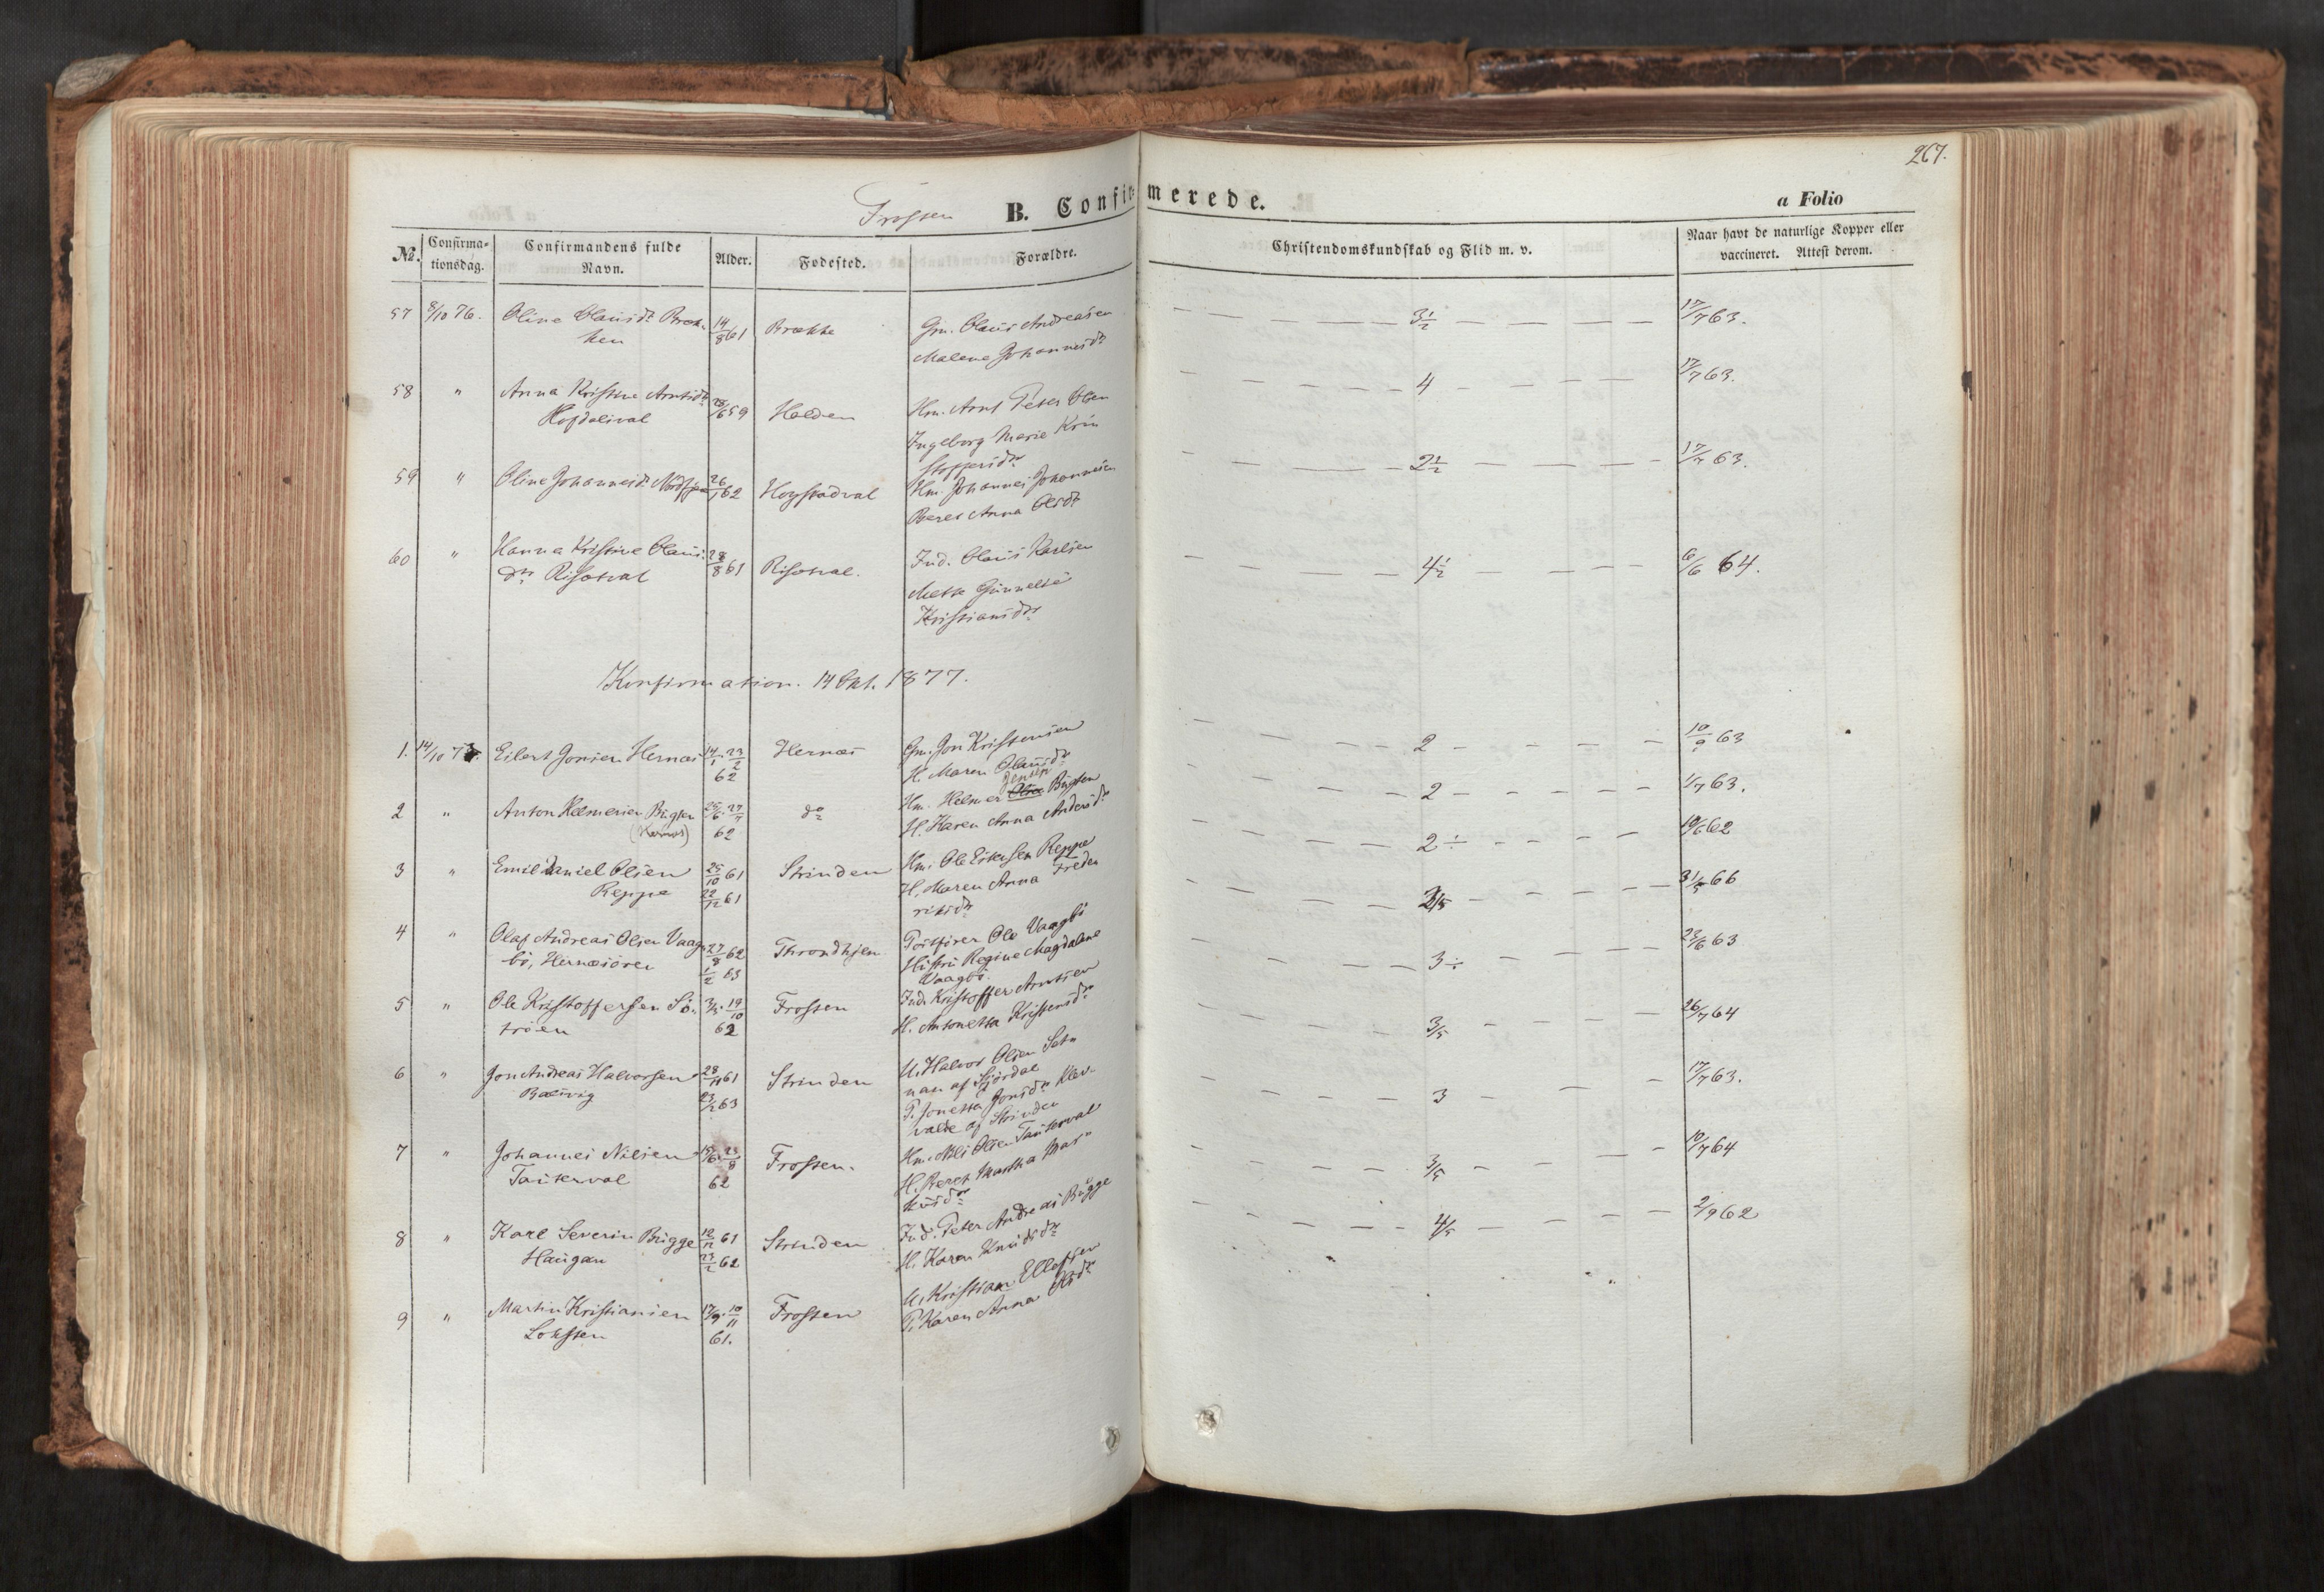 267.
Frosten B. Confirmerede. a Folio
No. Confirmationsdag. Confirmandens fulde Navn. Alder. Fødested. Forældre. Christendomskundskab og Flid m. v. Naar havt de naturlige Kopper eller vaccineret. Attest derom.
57 8/10 76. Oline Olausdr. Bræk- 14/8 61 Brække Gm. Olaus Andreasen — 3½ — 17/7 63.
ken Malene Johannesdr.
58 " Anna Kristine Arntsdr. /6 59 Halden Hm. Arnt Peter Olsen — 4 — 17/7 63.
Hofdalsval Ingeborg Marie Kri-
stoffersdr.
59 " Oline Johannesdr. 26/1 62 Hogstadval Hm. Johannes Johannesen — 2½ — 17/7 63.
Beret Anna Olsdr.
60 " Hanna Kristine Olaus- 28/8 61 Risetval. Ind. Olaus Karlsen — 4½ — 6/6 64.
dtr Risetval Mette Gunnelie
Kristiansdr.
Konfirmation. 14 Okt. 1877.
1. 14/10 77. Eilert Jonsen Hernæs 14/1 . 23/2 Hernæs Gm. Jon Kristensen — 2 — 10/9 63
62 H. Maren Olausdr.
Jensen
2 " Anton Helmersen Bugten 25/6 . 27/7 do Hm. Helmer Olsen Bugten — 2 — 1/7 63.
62 H. Karen Anna Andersdr.
3 " Emil Daniel Olsen 25/10 61 Strinden Hm. Ole Eilersen Reppe — 2 ÷ — 10/6 62
Reppe 22/12 61 H. Maren Anna Fred-
riksdr.
4 " Olaf Andreas Olsen Vaag- 27/8 62 Throndhjem Ole Vaagbø — 2/3 — 31/5 66
bø, Hernæsøren 1/2 63 Hustru Regine Magdalene
Vaagbø.
5 " Ole Kristoffersen Sø- 3/5 . 19/10 Frosten Ind. Kristoffer Arntsen — 3 ÷ — 23/6 63
trøen 62 H. Antonetta Kristensdr.
6 " Jon Andreas Halvorsen 28/11 61 Strinden U. Halvor Olsen Set- — 3/5 — 26/7 64
Balsvig 23/2 63 nan af Stjørdal
P. Jonetta Jonsdr. Klev-
af Strinden
7 " Johannes Nilsen 15/6 . 23/8 Frosten. Hm. Nils Olsen Tauterval — 3 — 17/7 63.
Tauterval 62 H. Beret Martha Mar-
kusdr
8 " Karl Severin Brugge 12/11 61 Strinden Ind. Peter Andreas Bugge — 3/5 — 10/7 64
Haugan 23/2 62 H. Karen Knudsdr.
9 " Martin Kristiansen 17/9 . 10/11 Frosten U. Kristian Ellefsen — 4/5 — 2/9 62
Lohsten 61. P. Karen Anna Olsdr.